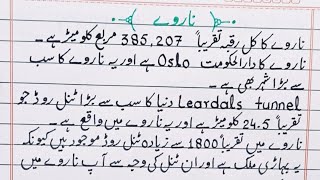 ناروے
ناروے کا کل رقبہ تقریباً 385,207 مربع کلومیٹر ہے۔
ناروے کا دارالحکومت Oslo ہے اور یہ ناروے کا سب
سے بڑا شہر بھی ہے۔
Leardals tunnel دنیا کا سب سے بڑا ٹنل روڈ جو
تقریباً 24.5 کلومیٹر ہے اور یہ ناروے میں واقع ہے۔
ناروے میں تقریباً 1800 سے زیادہ ٹنل روڈ موجود ہیں کیونکہ
یہ پہاڑی ملک ہے اور ان ٹنل کی وجہ سے آپ ناروے میں